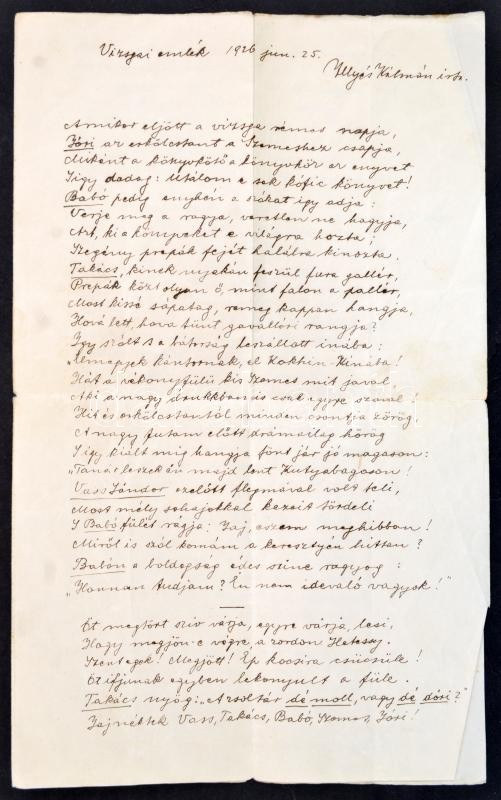 Vizsgai emlék 1926 jun. 25.
Illyés Kálmán irta.
Amikor eljött a vizsga rémes napja,
Józsi az erkölcstant a Szemeshez csapja,
Miként a könyvkötő a könyvhöz az enyvet
S igy dadog: Utálom e sok kófic könyvet!
Babó pedig enyhén a szókat igy adja:
Verje meg a ragya, veretlen ne hagyja,
Azt, ki a könyveket e világra hozta;
Szegény prepák fejét halálra kinozta.
Takács, kinek nyakán feszül fura gallér,
Prepák közt olyan ő, mint falon a pallér,
Most kissé sápatag, remeg kappan hangja,
Hová lett, hova tünt gavalléri rangja?
Igy szólt s a bátorság leszállott inába:
"Elmegyek kántornak, el Kokhin-Kinába!
Hát a vékonyfülü kis Szemes mit javal,
Aki a nagy drukkban is csak egyre szaval!
Hit és erkölcstantól minden csontja zörög,
A nagy futam előtt drámailag hörög
S igy kiált mig hangja fönt jár jó magason:
"Tanár leszek én majd lent Kutyabagoson!
Vass Sándor ezelőtt flegmával volt teli,
Most mély sohajokkal kezeit tördeli
S Babó fülét rágja: Jaj, eszem meghibban!
Miről is szól komám a keresztyén hittan?
Babón a boldogság édes szine ragyog:
"Honnan tudjam? Én nem idevaló vagyok!"
Öt megtört sziv várja, egyre várja, lesi,
Hogy megjön-e végre a zordon Hetessy.
Szentegek! Megjött! Ép kocsira csücsüle!
Öt ifjunak egyben lekonyult a füle.
Takács nyög: "A zsoltár dé moll, vagy dé dóri?"
Jaj néktek Vass, Takács, Babó, Szemes, Józsi!